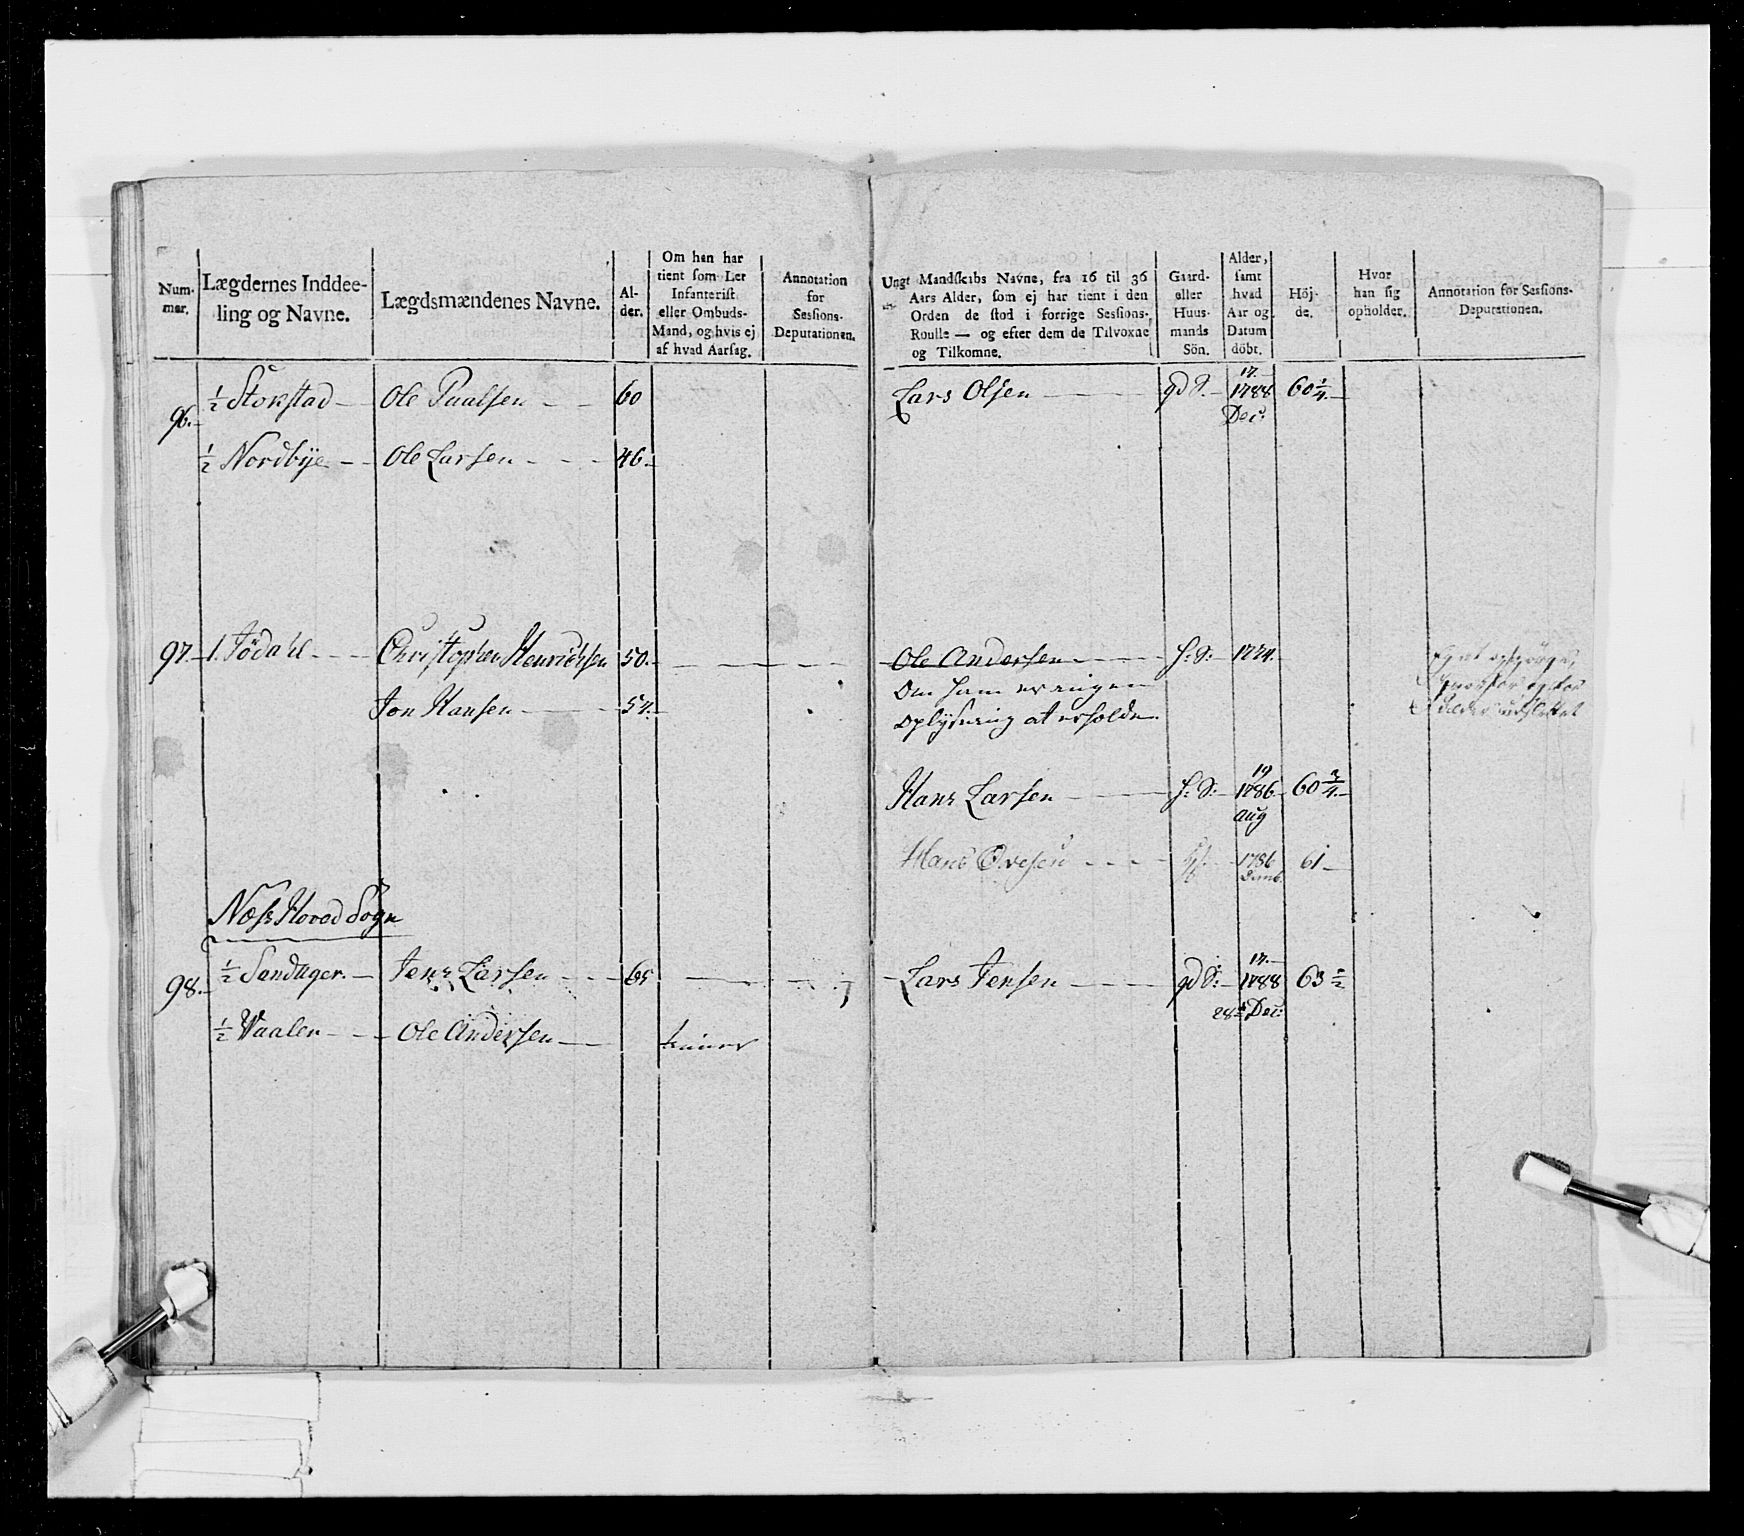 Num-
mer.
Lægdernes Inddee-
ling og Navne.
Lægdsmændenes Navne.
Al-
der.
Om han har
tient som Let
Infanterist
eller Ombuds-
Mand, og hvis ej
af hvad Aarsag.
Annotation
for
Sessions-
Deputationen.
Ungt Mandskabs Navne, fra 16 til 36
Aars Alder, som ej har tient i den
Orden de stod i forrige Sessions-
Roulle — og efter dem de Tilvoxne
og Tilkomne.
Gaard-
eller
Huus-
mands
Sön.
Alder,
samt
hvad
Aar og
Datum
födt.
Höj-
de.
Hvor
han sig
opholder.
Annotation for Sessions-
Deputationen.
96. ½ Stokstad Ole Paulsen 60 Lars Olsen gd S. 17. 1788 Dec: 60 ¼
½ Nordbye Ole Larsen 46.
97. 1. Födahl Christopher Henrichsen 50. Ole Andersen H: S: 1774.
Jon Hansen 54. Om ham er ingen
Oplysning at erholde
Hans Larsen H: S: 19 1786 aug 60 ¾
Hans Ovesen 1786 61
Næs Hoved Sogn
98. ½ Sandager Jens Larsen 65 Lars Jensen gd S: 17. 1788 28 Dec: 63 ½
½ Vaaler Ole Andersen